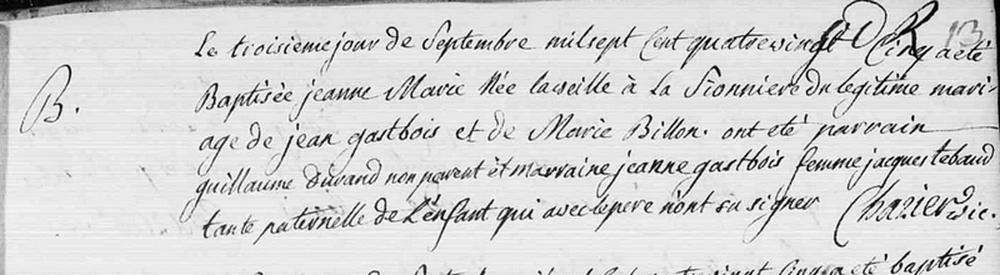 13
Le troisieme jour de Septembre mil sept Cent quatre vingt Cinq a eté
B.
Baptisée jeanne Marie Née la veille à La Sionniere du legitime mari-
age de jean gastbois et de Marie Billon. ont eté parrain
guillaume Durand non parent et marraine jeanne gastbois femme jacques tebaud
tante paternelle de L'enfant qui avec le pere n'ont su signer Chazier vic.
baptisé